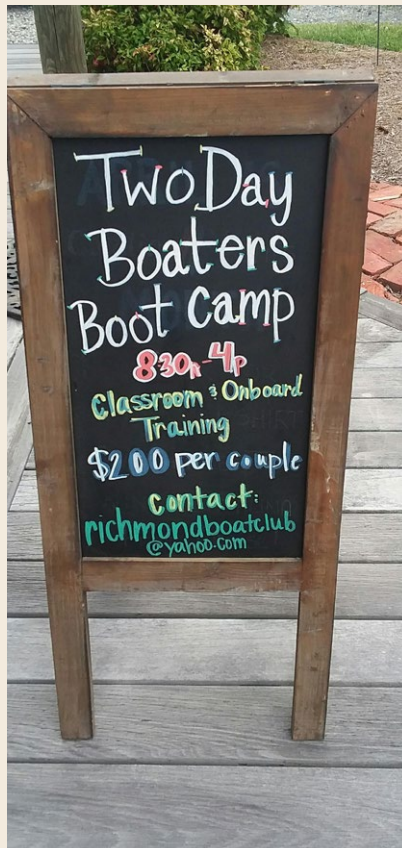 Two Day
Boaters
Boot Camp
830a-4p
Classroom & Onboard
Training
$200 per couple
contact:
richmondboatclub
@yahoo.com